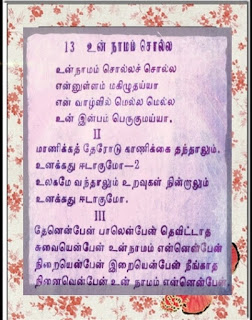 13 உன் நாமம் சொல்ல
உன்நாமம் சொல்லச் சொல்ல
என்னுள்ளம் மகிழுதய்யா
என் வாழ்வில் மெல்ல மெல்ல
உன் இன்பம் பெருகுமய்யா.
II
மாணிக்கத் தேரோடு காணிக்கை தந்தாலும்.
உனக்கது ஈடாகுமோ-2
உலகமே வந்தாலும் உறவுகள் நின்றாலும்
உனக்கது ஈடாகுமோ.
III
தேனென்பேன் பாலென்பேன் தெவிட்டாத
சுவையென்பேன் உன் நாமம் என்னென்பேன்
நிறையென்பேன் இறையென்பேன் நீங்காத
நினைவென்பேன் உன் நாமம் என்னென்பேன்